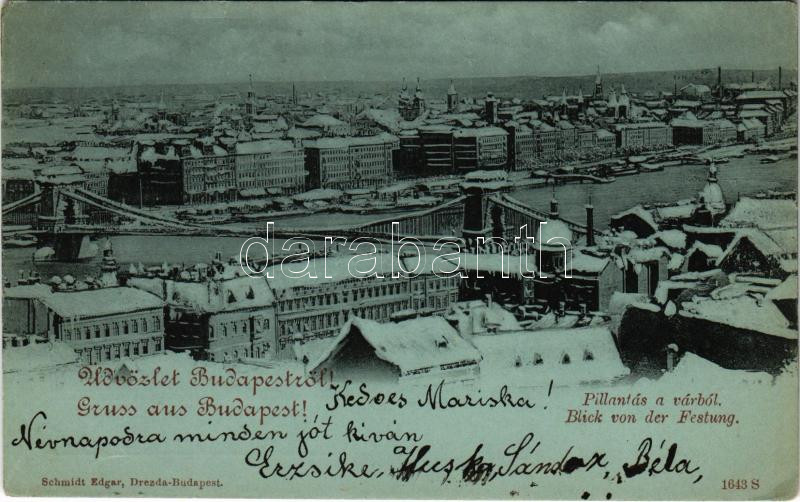 darabanth
Üdvözlet Budapestről!
Gruss aus Budapest!
Pillantás a várból.
Blick von der Festung.
Kedves Mariska!
Névnapodra minden jót kiván
a
Erzsike, Sándor, Béla,
Schmidt Edgar, Drezda-Budapest.
1643 S